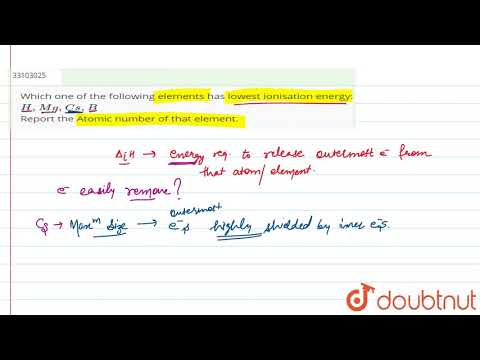 33103025
Which one of the following elements has lowest ionisation energy:
H, Mg, Cs, B
Report the Atomic number of that element.
ΔiH → energy req. to release outermost e⁻ from
that atom/element.
e⁻ easily remove?
outermost
Cs → Maxᵐ Size → e⁻s highly shielded by inner e⁻s.
doubtnut